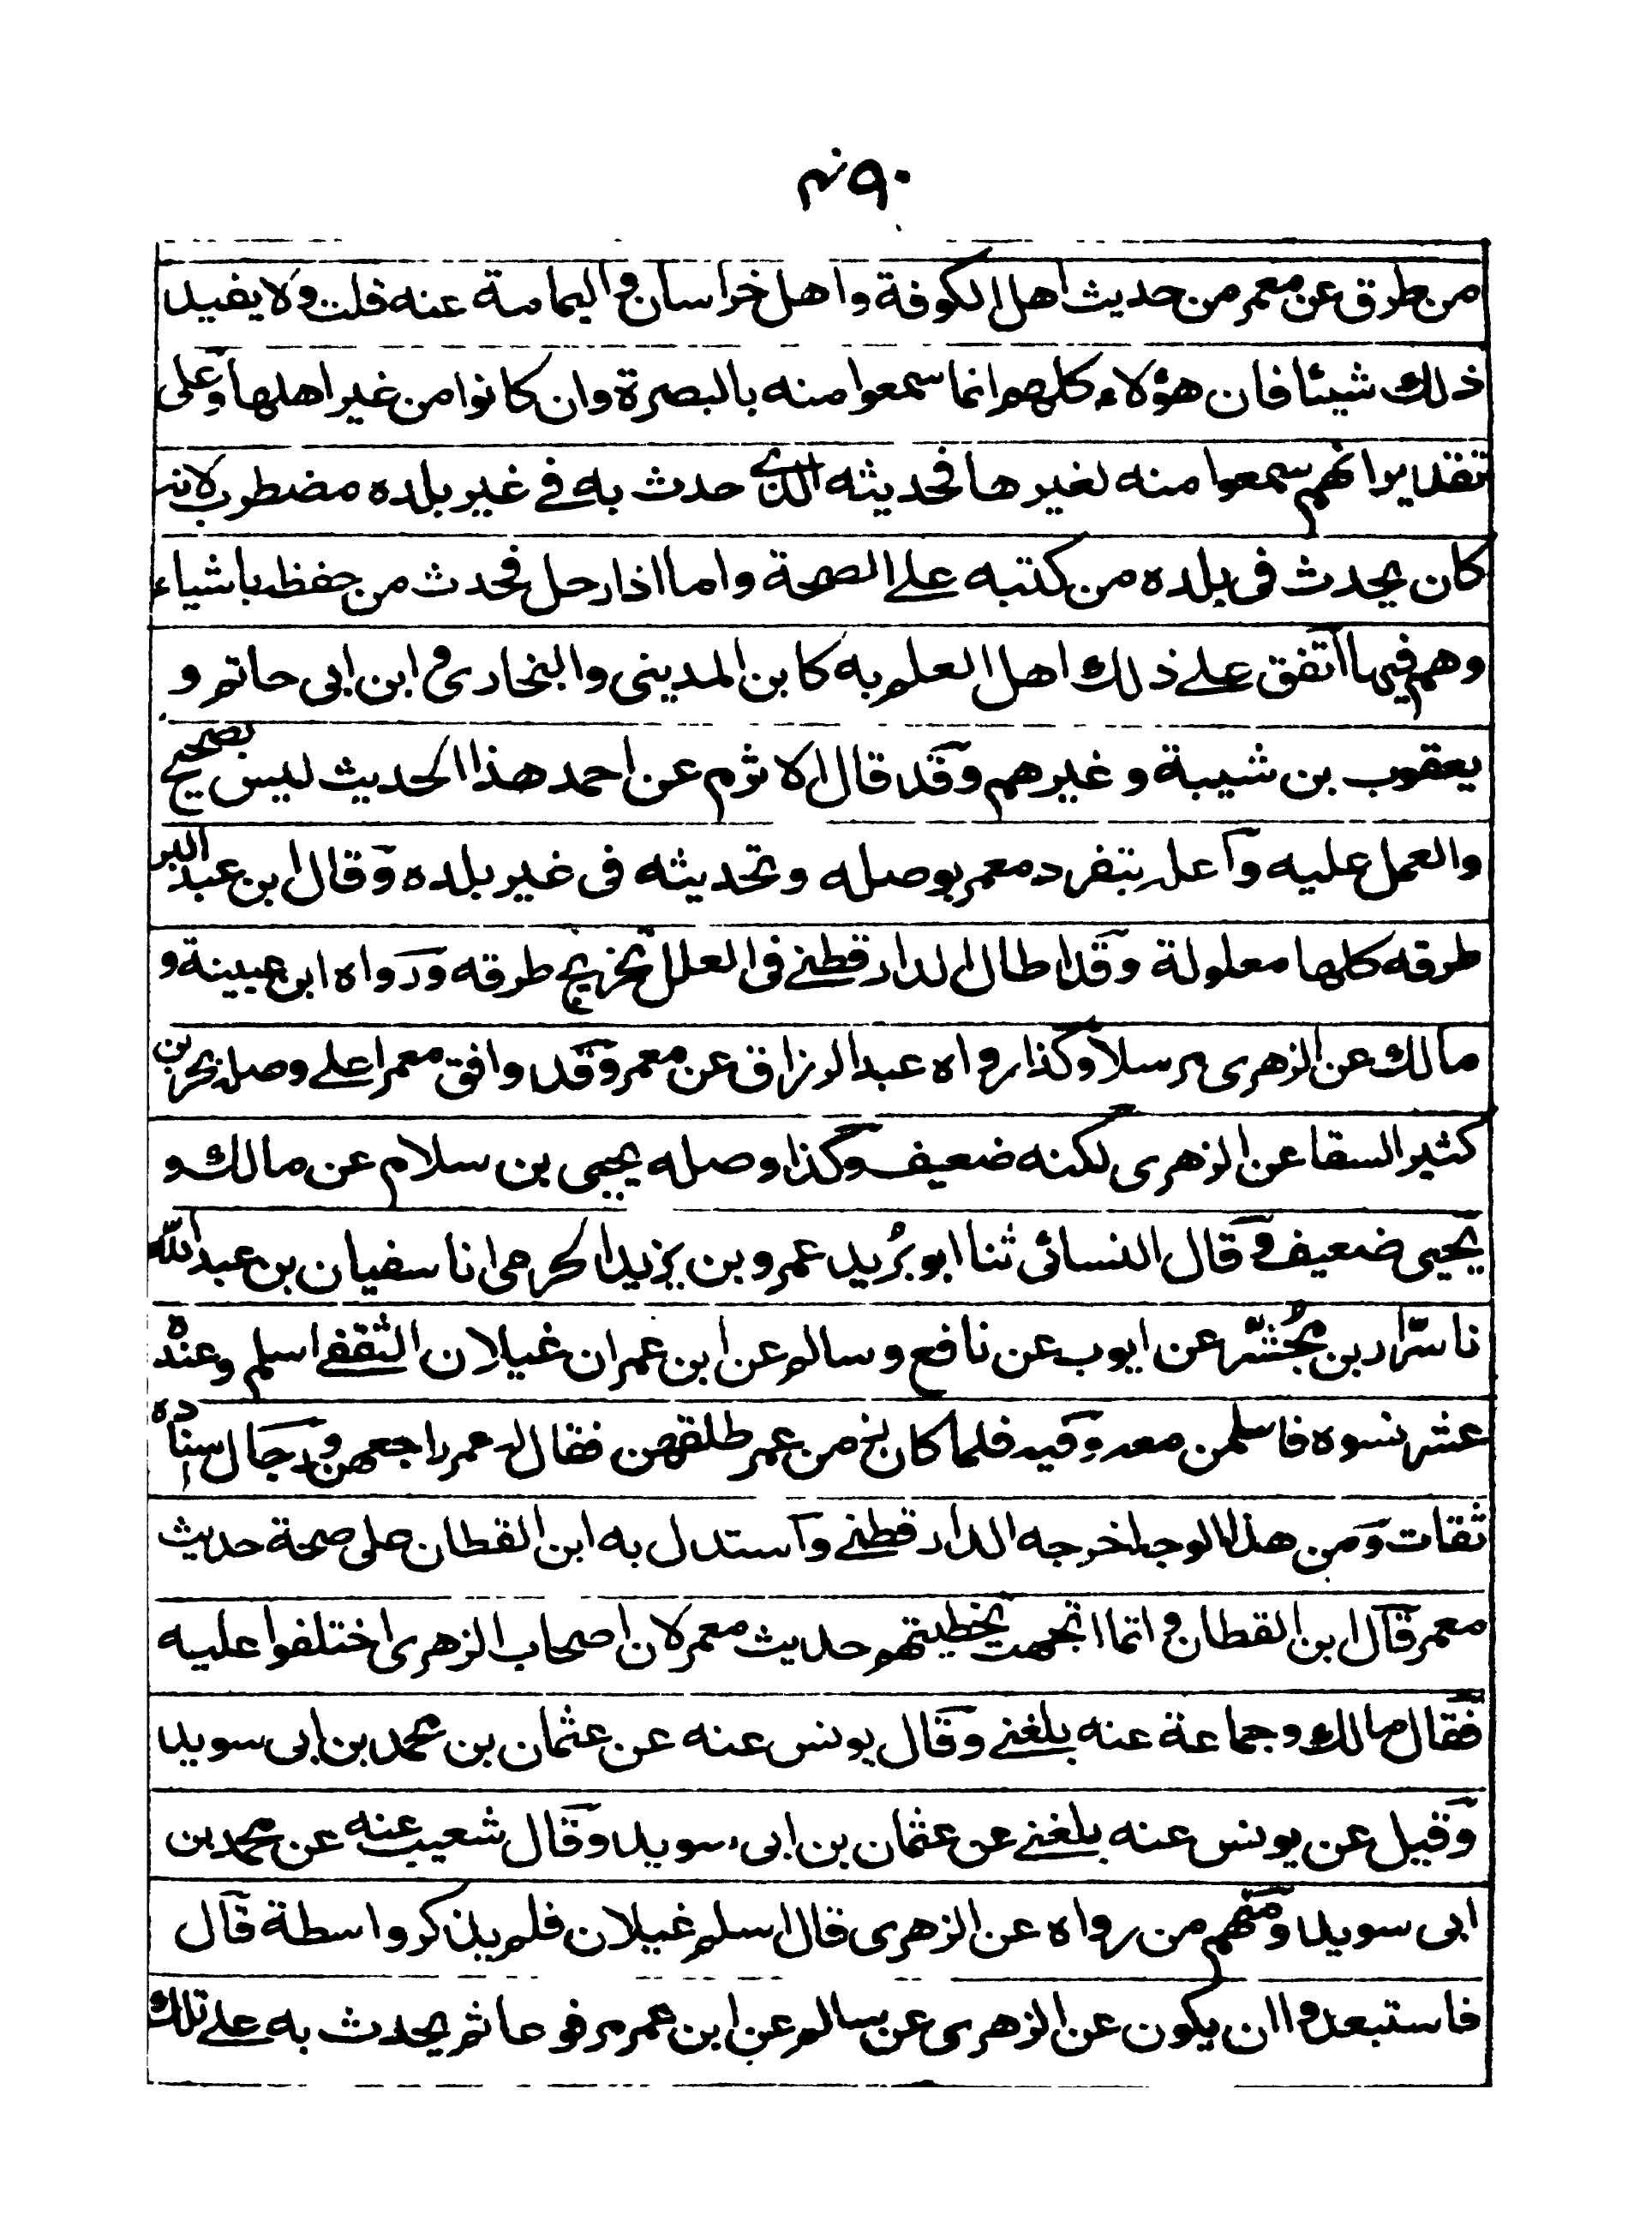 ٩٠
من طرق عن معمر من حديث اهل الكوفة واهل خراسان و اليمامة عنه قلت ولا يفيد
ذلك شيئا فان هؤلاء كلهم انما سمعوا منه بالبصرة وان كانوا من غير اهلها وعلى
تقدير انهم سمعوا منه لغيرها فحديثه الذي حدث به في غير بلده مضطرب لانه
كان يحدث في بلده من كتبه على الصحة واما اذا رحل فحدث من حفظه باشياء
وهم فيها اتفق على ذلك اهل العلم به كابن المديني والبخاري و ابن ابي حاتم و
يعقوب بن شيبة وغيرهم وقد قال الاثرم عن احمد هذا الحديث ليس بصحيح
والعمل عليه واعله بتفرد معمر بوصله وتحديثه في غير بلده وقال ابن عبد البر
طرقه كلها معلولة وقد اطال الدارقطني في العلل تخريج طرقه ورواه ابن عيينة و
مالك عن الزهري مرسلا وكذا رواه عبد الرزاق عن معمر وقد وافق معمرا على وصله بحر بن
كثير السقا عن الزهري لكنه ضعيف وكذا وصله يحيى بن سلام عن مالك و
يحيى ضعيف و قال النسائي ثنا ابو بُريد عمرو بن يزيد الجرمي انا سفيان بن عبد الله
نا سرّار بن مُجَشّر عن ايوب عن نافع وسالم عن ابن عمر ان غيلان الثقفي اسلم وعنده
عشر نسوه فاسلمن معه وفيه فلما كان زمن عمر طلقهن فقال له عمر راجعهن ورجال اسناده
ثقات ومن هذا الوجه اخرجه الدارقطني واستدل به ابن القطان على صحة حديث
معمر قال ابن القطان و انما اتجهت تخطيتهم حديث معمر لان اصحاب الزهري اختلفوا عليه
فقال مالك وجماعة عنه بلغني وقال يونس عنه عن عثمان بن محمد بن ابي سويد
وقيل عن يونس عنه بلغني عن عثمان بن ابي سويد وقال شعيب عنه عن محمد بن
ابي سويد ومنهم من رواه عن الزهري قال اسلم غيلان فلم يذكر واسطة قال
فاستبعدوا ان يكون عن الزهري عن سالم عن ابن عمر مرفوعا ثم يحدث به على تلك